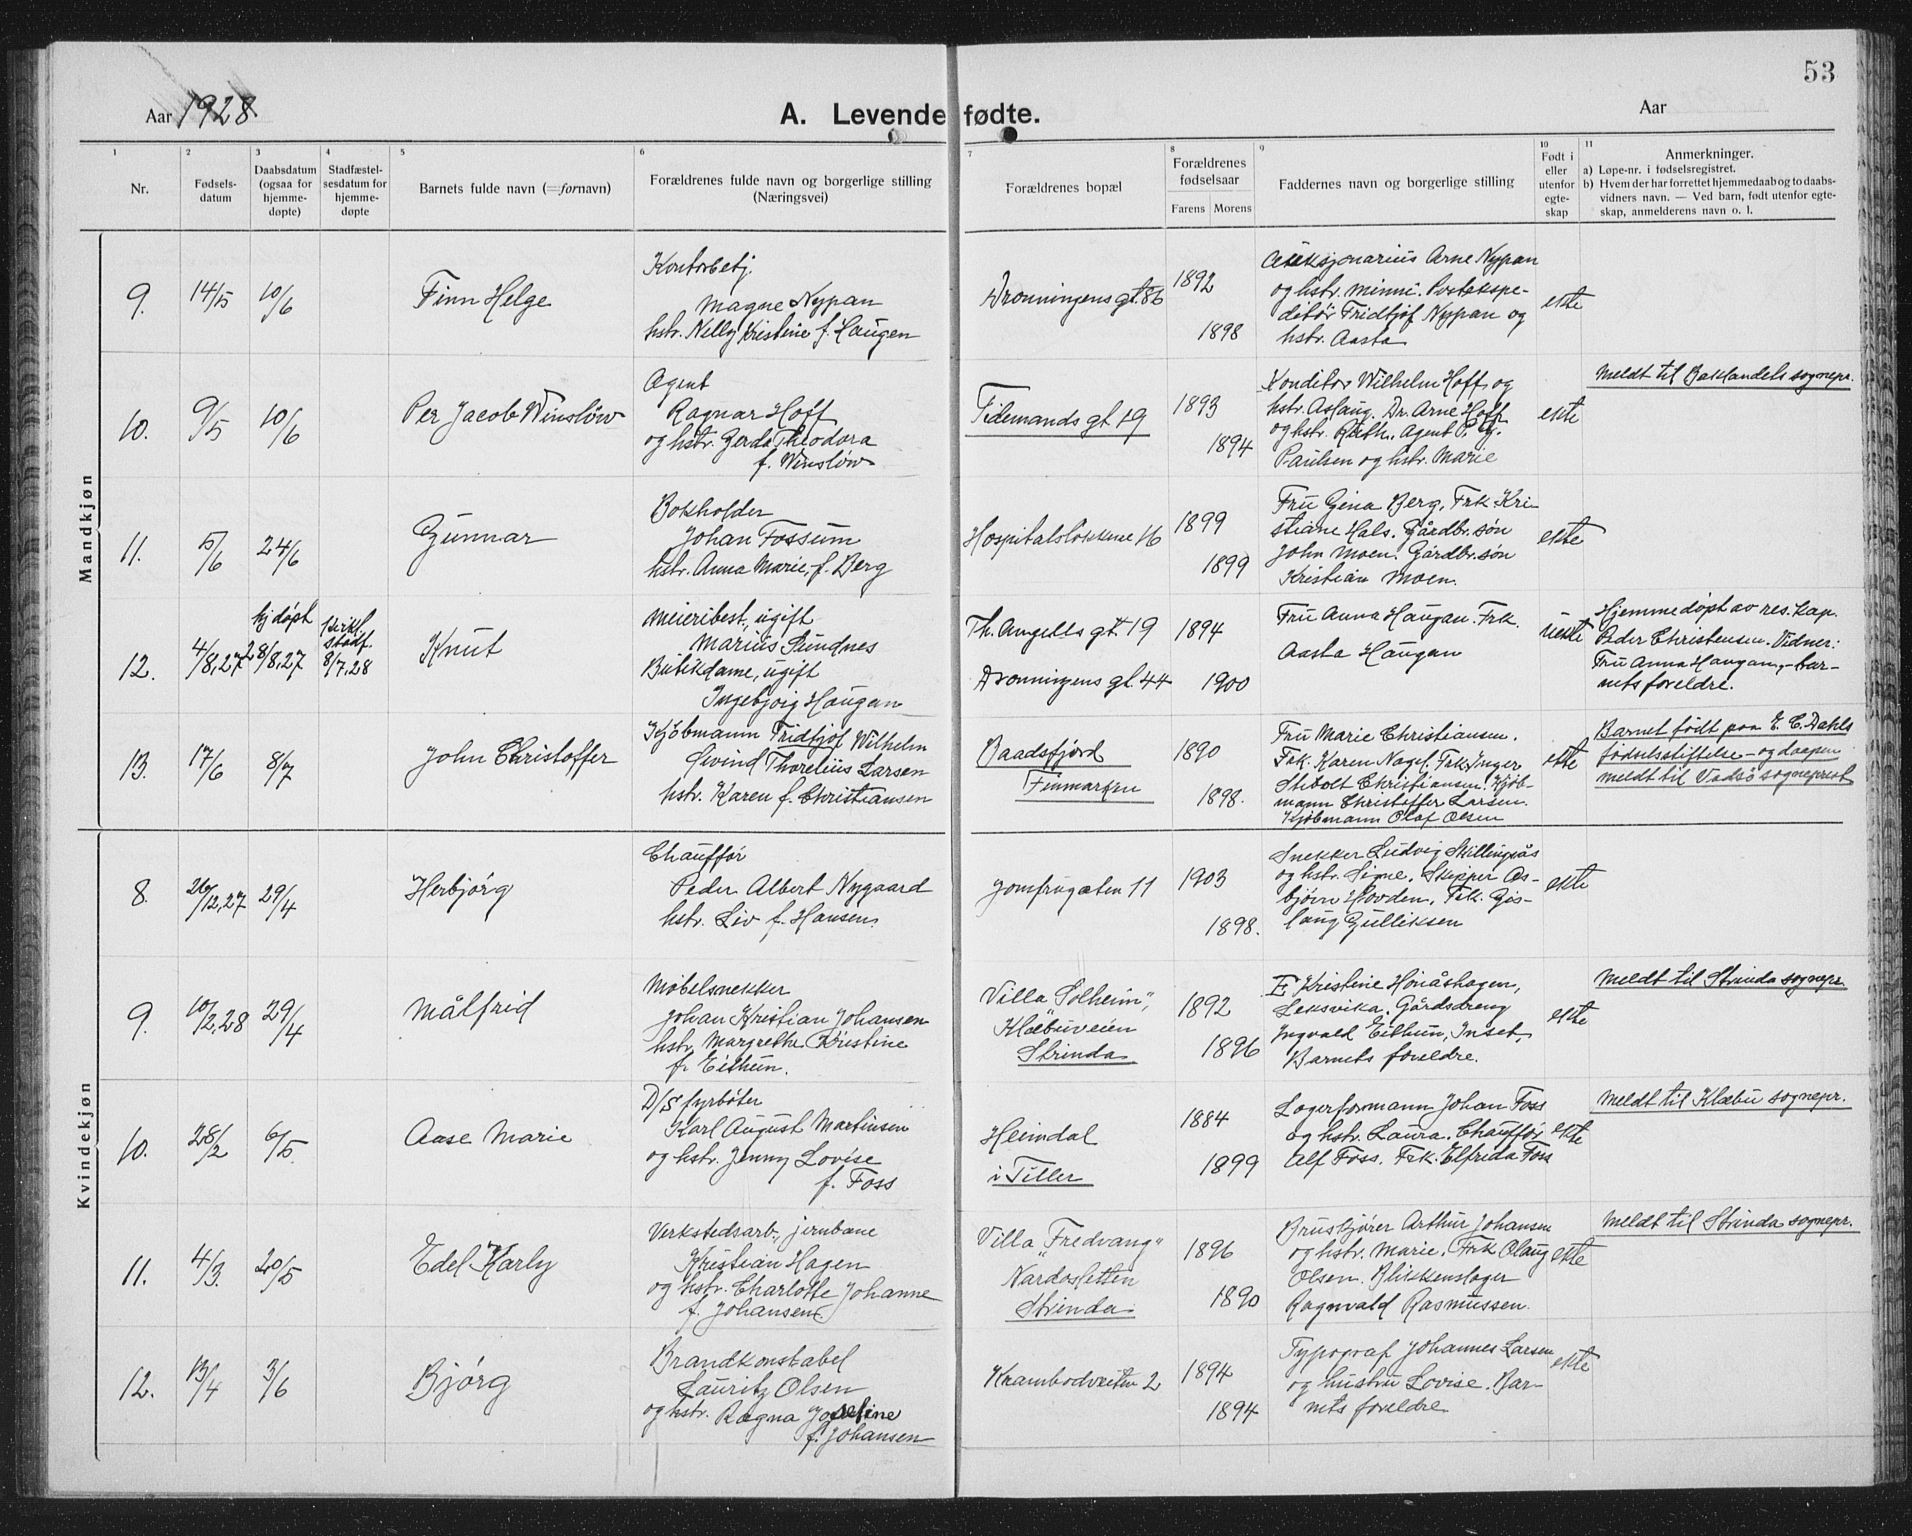 53
Aar 1928
A. Levende fødte.
Aar
1
2
3
4
5
6
7
8
9
10
11
Nr.
Fødsels-
datum
Daabsdatum
(ogsaa for
hjemme-
døpte)
Stadfæstel-
sesdatum for
hjemme-
døpte
Barnets fulde navn (=fornavn)
Forældrenes fulde navn og borgerlige stilling
(Næringsvei)
Forældrenes bopæl
Forældrenes
fødselsaar
Farens Morens
Faddernes navn og borgerlige stilling
Født i
eller
utenfor
egte-
skap
Anmerkninger.
a) Løpe-nr. i fødselsregistret.
b) Hvem der har forrettet hjemmedaab og to daabs-
vidners navn. — Ved barn, født utenfor egte-
skap, anmelderens navn o. l.
Mandkjøn
9.
14/5
10/6
Finn Helge
Kontorbetj.
Magne Nypan
hstr. Nelly Kristine f. Haugen
Dronningens gt. 86
1892
1898
Arne Nypan
og hstr. Minni. Postekspe-
ditør Fridtjof Nypan og
hstr. Aasta
ekte
10.
9/5
10/6
Per Jacob Winsløw
Agent
Ragnar Hoff
og hstr. Gerda Theodora
f. Winsløw
Tidemands gt. 19
1893
1894
Konditor Wilhelm Hoff og
hstr. Aslaug. Dr. Arne Hoff
og hstr. Ruth. Agent
Paulsen og hstr. Marie
ekte
Meldt til Baklandets sognepr.
11.
5/6
24/6
Gunnar
Bokholder
Johan Fossum
hstr. Anna Marie, f. Berg
Hospitalsløkkene 16
1899
1899
Fru Gina Berg. Frk. Kri-
stiane Hals. Gårdbr.søn
John Moen. Gårdbr.søn
Kristian Moen.
ekte
12.
4/8,27
hj døpt
28/8,27
kirkl.
stadf.
8/7,28
Knut
Meieribest., ugift
Marius Sundnes
Butikdame, ugift
Ingebjørg Haugan
Th. Angells gt. 19
Dronningens gt. 44
1894
1900
Fru Anna Haugan. Frk.
Aasta Haugan
uekte
Hjemmedøpt av res.kap.
Peder Christensen. Vidner:
Fru Anna Haugan, - bar-
nets foreldre.
13.
17/6
8/7
John Christoffer
Kjøbmann Fridtjof Wilhelm
Øivind Thorelius Larsen
hstr. Karen f. Christiansen
Baadsfjord
Finmarken
1890
1898.
Fru Marie Christiansen.
Frk. Karen Nagel. Frk Inger
Stibolt Christiansen. Kjøb-
mann Christoffer Larsen.
Kjøbmann Olaf Olsen
ekte
Barnet født paa E. C. Dahls
fødselsstiftelse - og daapen
meldt til Vadsø sogneprest
Kvindekjøn
8.
26/12,27
29/4
Herbjørg
Chauffør
Peder Albert Nygaard
hstr. Liv f. Hansen.
Jomfrugaten 11
1903
1898.
Snekker Ludvig Skillingsås
og hstr. Signe. Skipper As-
bjørn Hovden. Frk. Gis-
laug Gulliksen
ekte
9.
10/2,28
29/4
Målfrid
Møbelsnekker
Johan Kristian Johansen
hstr. Margrethe Kristine
f. Eithun.
Villa "Solheim",
Klæbuveien
Strinda
1892
1896
E Kristine Hønåshagen,
Leksvika. Gårdsdreng
Ingvald Eithun, Inset,
Barnets foreldre.
ekte
Meldt til Strinda sognepr.
10.
28/2
6/5
Aase Marie
D/S fyrbøter
Karl August Martinsen
og hstr. Jenny Lovise
f. Foss
Heimdal
i Tiller
1884
1899
Lagerformann Johan Foss
og hstr. Laura. Chauffør
Alf Foss. Frk. Elfrida Foss
ekte
Meldt til Klæbu sognepr.
11.
4/3.
20/5
Edel Karly
Verkstedsarb., jernbane
Kristian Hagen
og hstr. Charlotte Johanne
f. Johansen.
Villa "Fredvang"
Nardosletten
Strinda
1896
1890
Bruskjører Arthur Johansen
og hstr. Marie. Frk Olaug
Olsen. Blikkenslager
Ragnvald Rasmussen.
ekte
Meldt til Strinda sognepr.
12.
13/4
3/6
Bjørg
Brandkonstabel
Lauritz Olsen
og hstr. Ragna Josefine
f. Johansen
Krambodveiten 2
1894
1894
Typograf Johannes Larsen
og hustru Lovise. Bar-
nets foreldre
ekte